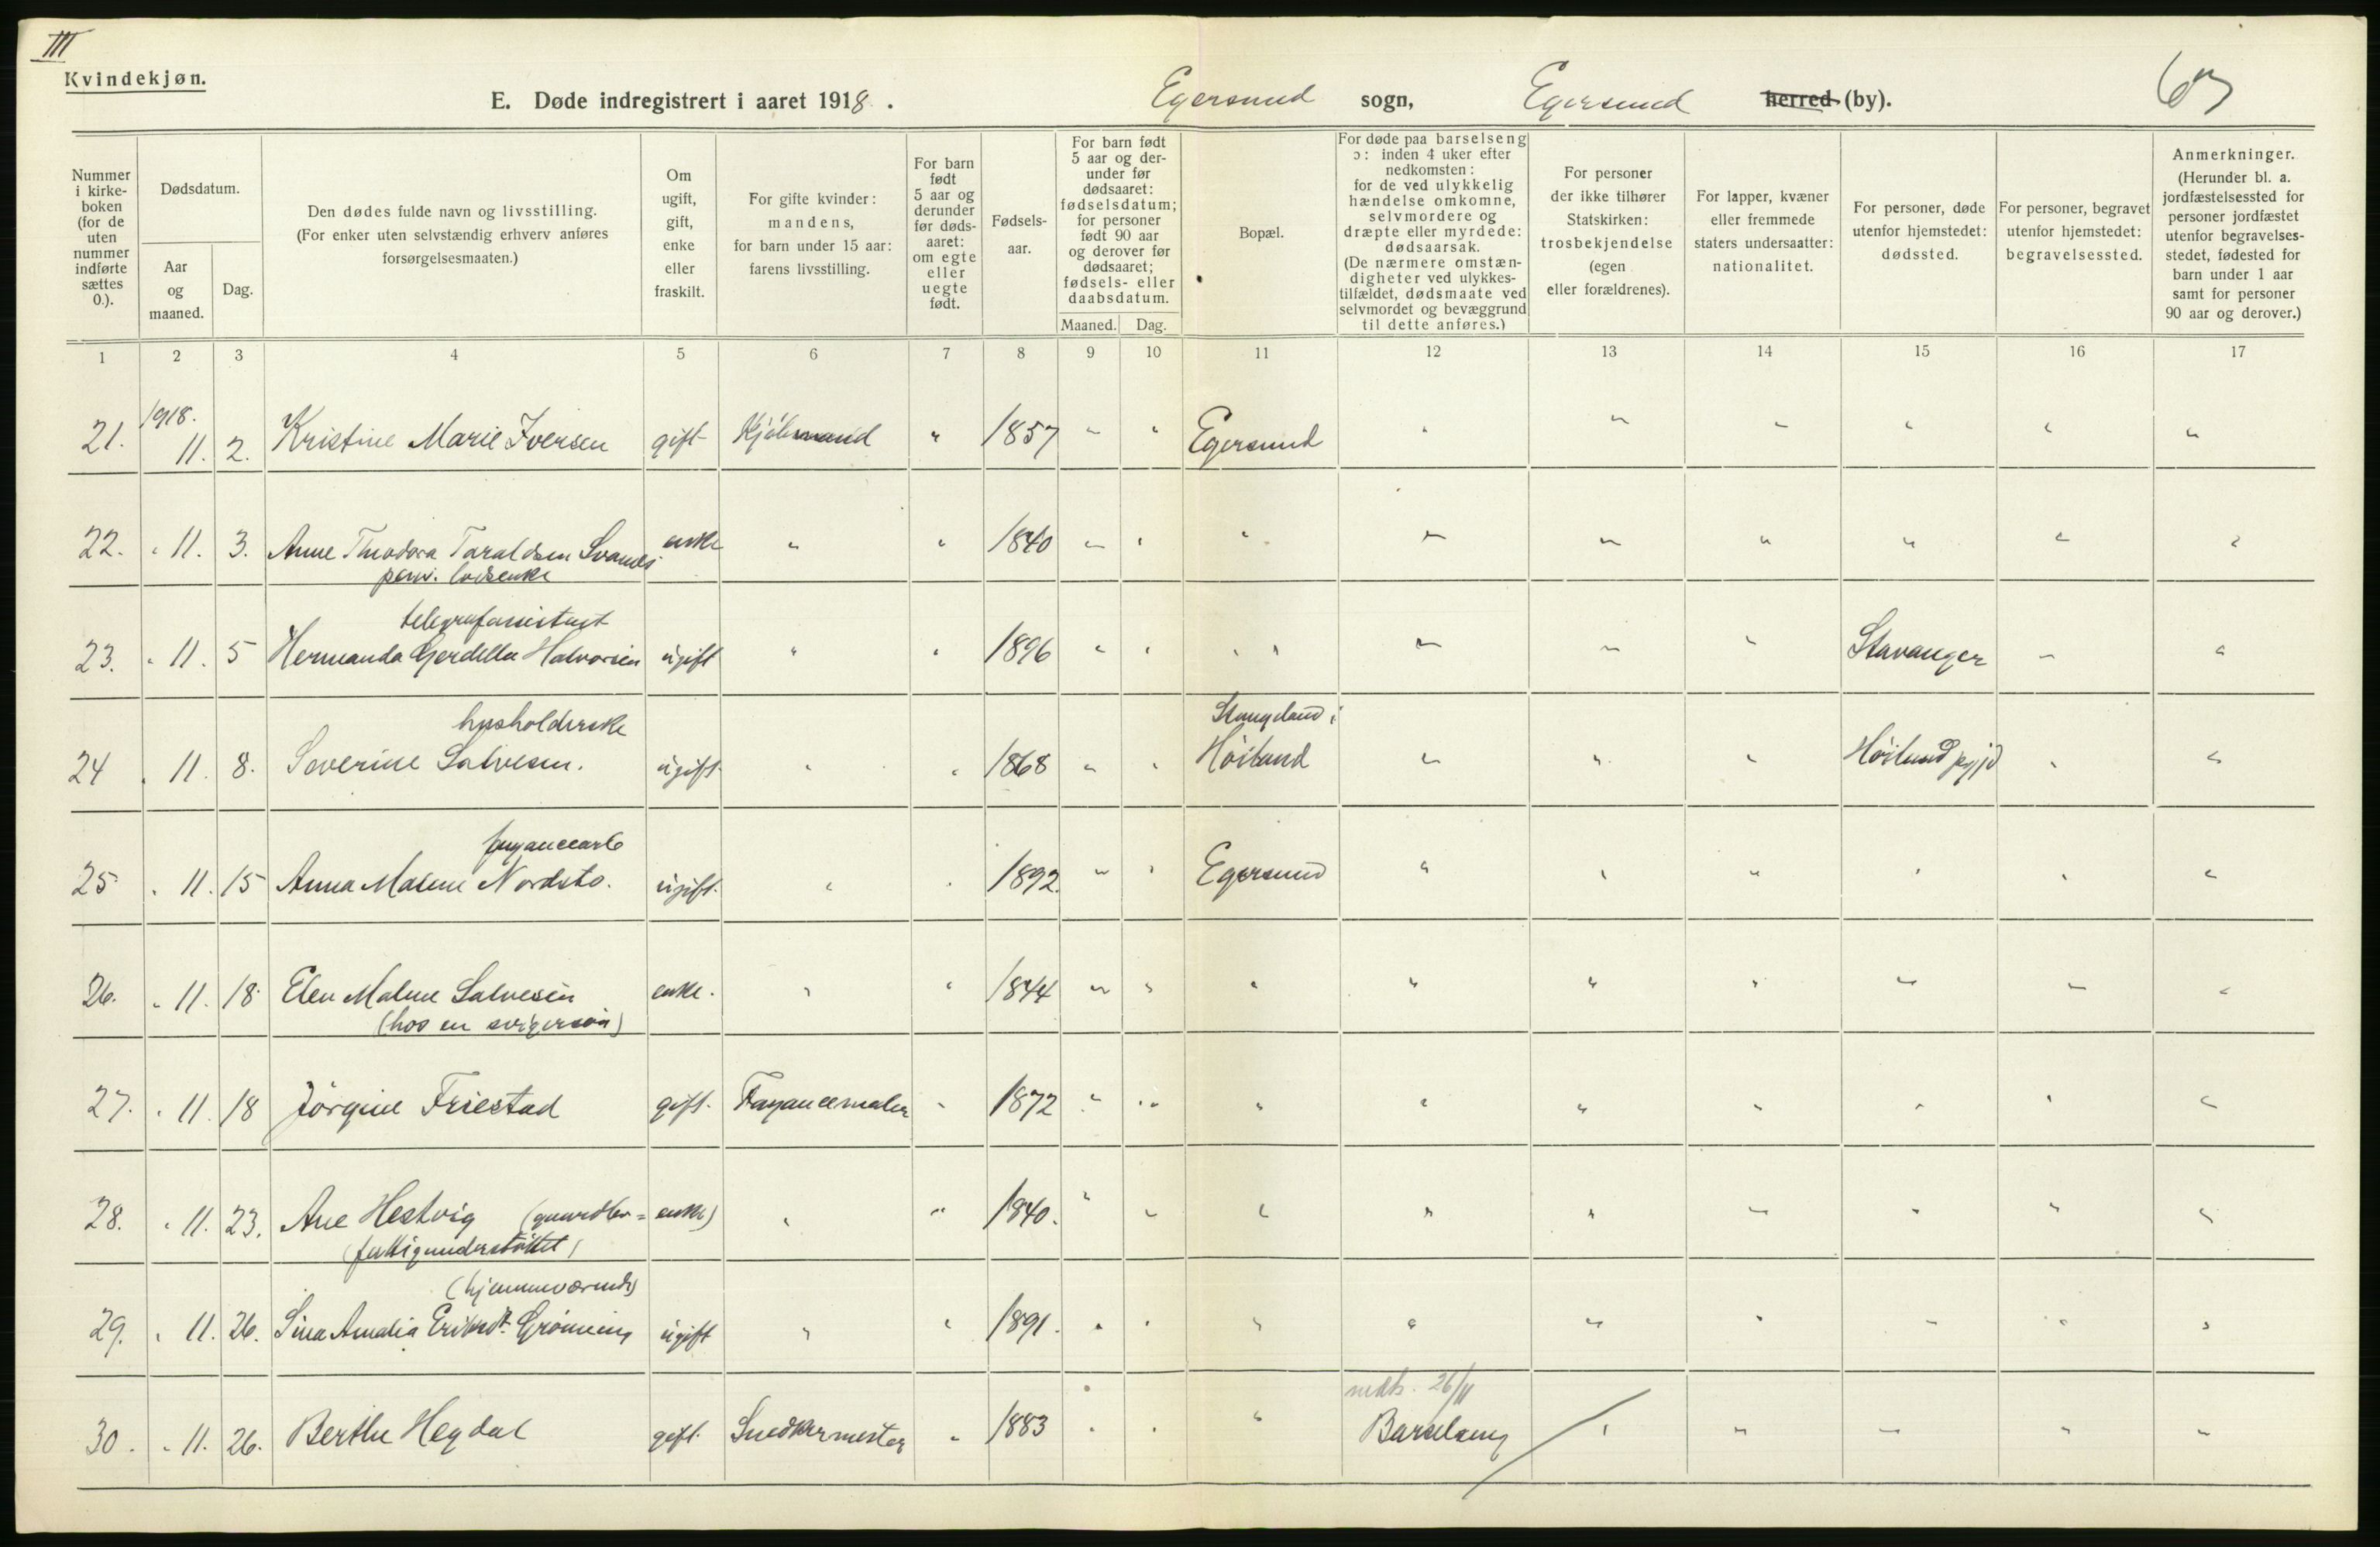 III
Kvindekjøn.
E. Døde indregistrert i aaret 1918.
Egersund sogn, Egersund herred (by).
67
Nummer i kirkeboken (for de uten nummer indførte sættes 0.).
Dødsdatum.
Aar og maaned.
Dag.
Den dødes fulde navn og livsstilling. (For enker uten selvstændig erhverv anføres forsørgelsesmaaten.)
Om ugift, gift, enke eller fraskilt.
For gifte kvinder: mandens, for barn under 15 aar: farens livsstilling.
For barn født 5 aar og derunder før dødsaaret: om egte eller uegte født.
Fødselsaar.
For barn født 5 aar og derunder før dødsaaret: fødselsdatum; for personer født 90 aar og derover før dødsaaret; fødsels- eller daabsdatum.
Maaned. Dag.
Bopæl.
For døde paa barselseng ɔ: inden 4 uker efter nedkomsten: for de ved ulykkelig hændelse omkomne, selvmordere og dræpte eller myrdede: dødsaarsak. (De nærmere omstændigheter ved ulykkestilfældet, dødsmaate ved selvmordet og bevæggrund til dette anføres.)
For personer der ikke tilhører Statskirken: trosbekjendelse (egen eller forældrenes).
For lapper, kvæner eller fremmede staters undersaatter: nationalitet.
For personer, døde utenfor hjemstedet: dødssted.
For personer, begravet utenfor hjemstedet: begravelsessted.
Anmerkninger. (Herunder bl. a. jordfæstelsessted for personer jordfæstet utenfor begravelsesstedet, fødested for barn under 1 aar samt for personer 90 aar og derover.)
1 2 3 4 5 6 7 8 9 10 11 12 13 14 15 16 17
1918.
21. 11. 2. Kristine Marie Iversen gift Kjøbmand " 1857 " " Egersund " " " " " "
22. " 11. 3. Anne Theodora Taraldsen Svanes enke " " 1840 " " " " " " " " "
pens. losenke
telegrafassistent
23. " 11. 5 Hermanda Gerdella Halvorsen ugift " " 1896 " " " " " " " Stavanger " "
husholderske
Stangeland i
24 " 11. 8. Severine Salvesen. ugift. " " 1868 " " Höiland " " " Höiland pgjd " "
fayancearb
25 " 11. 15 Anna Malene Nordsto. ugift. " " 1892. " " Egersund " " " " " "
26. " 11. 18 Elen Malene Salvesen enke. " " 1844 " " " " " " " " "
(hos en svigersøn)
27. " 11. 18 Jörgine Friestad gift. Fayancemaler " 1872 " " " " " " " " "
28. " 11. 23. Ane Hestvig (gaardbr=enke) " " 1840. " " " " " " " " "
(fattigunderstöttet)
(hjemmeværende)
29. " 11. 26. Sina Amalia Eriksdt. Grönning ugift " " 1891. " " " " " " " " "
nedk. 26/11
30. " 11. 26. Berthe Hegdal gift. Snedkermester " 1883 " " " Barselseng " " " " "